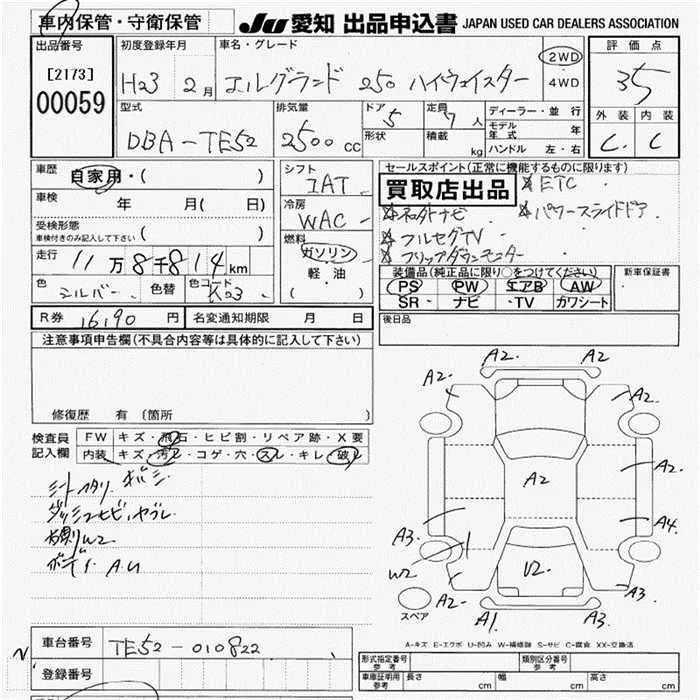 車内保管・守衛保管
JU 愛知 出品申込書 JAPAN USED CAR DEALERS ASSOCIATION
出品番号
[2173]
00059
初度登録年月
H23 2月
車名・グレード
エルグランド 250 ハイウェイスター
2WD
4WD
評価点
3.5
外装 内装
C C
型式
DBA-TE52
排気量
2500cc
ドア 5
形状
定員 7人
積載 kg
ディーラー・並行
モデル年式 年
ハンドル 左・右
車歴
自家用・( )
車検 年 月(日)
受検形態
車検付きのみ記入して下さい ( )
走行 11万8千814km
色 シルバー 色替 色コード K23
シフト
IAT
冷房
WAC
燃料
ガソリン
軽油
( )
セールスポイント(正常に機能するものに限ります)
買取店出品
ETC
パワースライドドア
フルセグTV
フリップダウンモニター
装備品(純正品に限り○をつけてください)
PS PW エアB AW
SR ナビ TV カワシート
新車保証書
R券 16190円 名変通知期限 月 日
後日品
注意事項申告欄(不具合内容等は具体的に記入して下さい)
修復歴 有〔箇所 〕
検査員
記入欄
FW キズ・飛石・ヒビ割・リペア跡・X要
内装 キズ・汚レ・コゲ・穴・スレ・キレ・破レ
右側W2
ボディ A.U
A2. A2
A2. A2.
A2
A2.
A3. A4.
W2 U2.
A2. A3.
A1 A3.
スペア
A-キズ E-エクボ U-凹み W-補修跡 S-サビ C-腐食 XX-交換済
車台番号 TE52-010822
登録番号
形式指定番号
参考
類別区分番号
参考
車庫証明用
参考
長さ cm 幅 cm 高さ cm